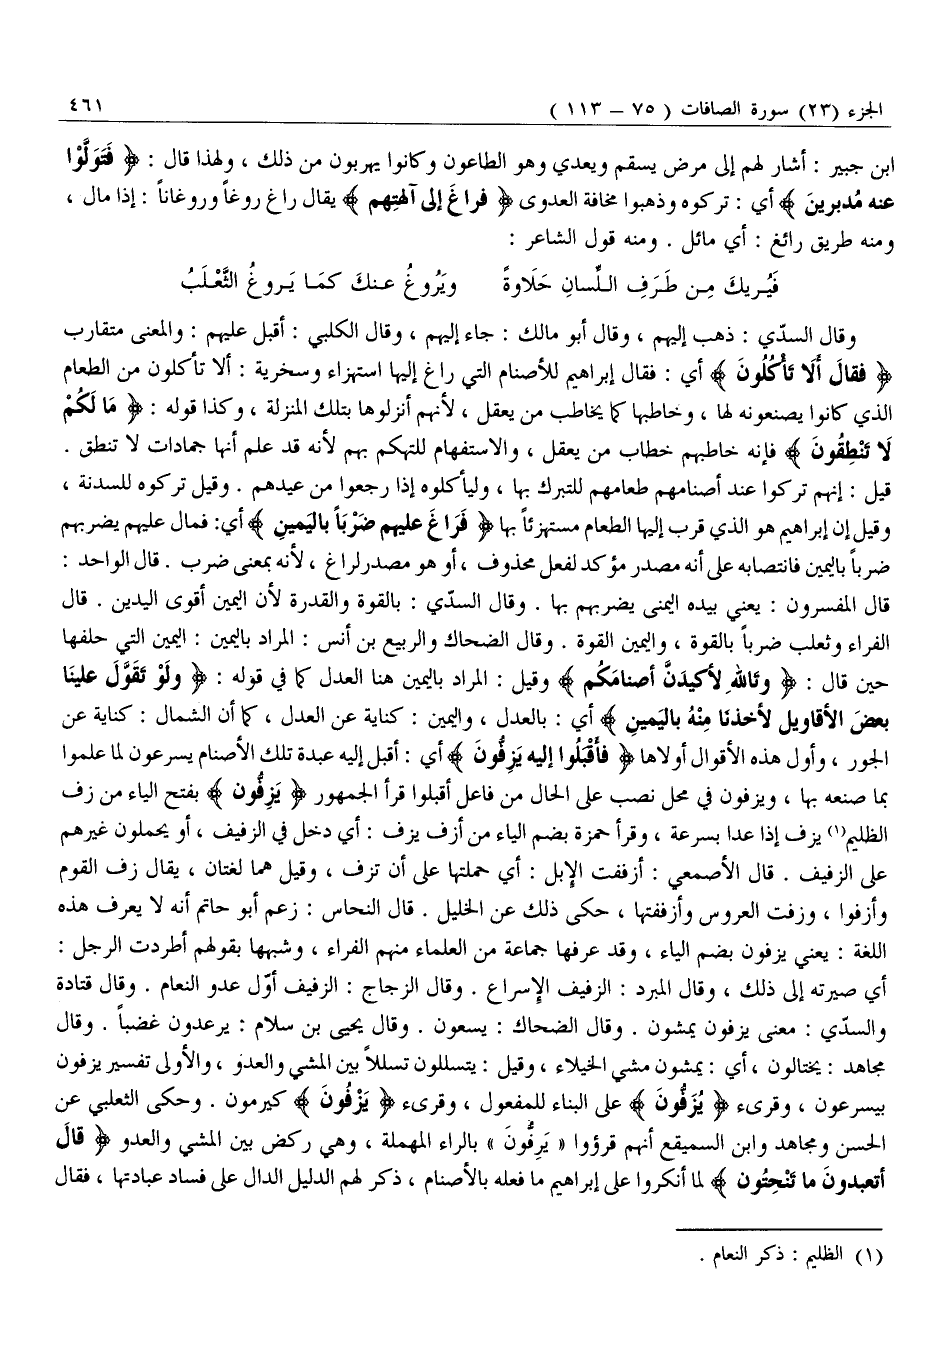 الجزء (٢٣) سورة الصافات ( ٧٥ – ١١٣ ) ٤٦١
ابن جبير : أشار لهم إلى مرض يسقم ويعدي وهو الطاعون وكانوا يهربون من ذلك ، ولهذا قال : ﴿ فَتَوَلَّوْا
عنه مُدبرينَ ﴾ أي : تركوه وذهبوا مخافة العدوى ﴿ فراغَ إلى آلهتِهم ﴾ يقال راغ روغاً وروغاناً : إذا مال ،
ومنه طريق رائغ : أي مائل . ومنه قول الشاعر :
فَيُـريكَ مِـن طَـرَفِ اللِّسانِ حَلَاوةً ويَرُوغُ عـنكَ كمَـا يَـروغُ الثَّعْلَبُ
وقال السدّي : ذهب إليهم ، وقال أبو مالك : جاء إليهم ، وقال الكلبي : أقبل عليهم : والمعنى متقارب
﴿ فقالَ أَلَا تَأْكُلُونَ ﴾ أي : فقال إبراهيم للأصنام التي راغ إليها استهزاء وسخرية : ألا تأكلون من الطعام
الذي كانوا يصنعونه لها ، وخاطبها كما يخاطب من يعقل ، لأنهم أنزلوها بتلك المنزلة ، وكذا قوله : ﴿ مَا لَكُمْ
لَا تَنْطِقُونَ ﴾ فإنه خاطبهم خطاب من يعقل ، والاستفهام للتهكم بهم لأنه قد علم أنها جمادات لا تنطق .
قيل : إنهم تركوا عند أصنامهم طعامهم للتبرك بها ، وليأكلوه إذا رجعوا من عيدهم . وقيل تركوه للسدنة ،
وقيل إن إبراهيم هو الذي قرب إليها الطعام مستهزئاً بها ﴿ فَرَاغَ عليهم ضَرْبَاً باليَمينِ ﴾ أي: فمال عليهم يضربهم
ضرباً باليمين فانتصابه على أنه مصدر مؤكد لفعل محذوف ، أو هو مصدر لراغ ، لأنه بمعنى ضرب . قال الواحد :
قال المفسرون : يعني بيده اليمنى يضربهم بها . وقال السدّي : بالقوة والقدرة لأن اليمين أقوى اليدين . قال
الفراء وثعلب ضرباً بالقوة ، واليمين القوة . وقال الضحاك والربيع بن أنس : المراد باليمين : اليمين التي حلفها
حين قال : ﴿ وتَاللهِ لأكيدَنَّ أصنامَكُم ﴾ وقيل : المراد باليمين هنا العدل كما في قوله : ﴿ ولَوْ تَقَوَّلَ علينَا
بعضَ الأقاويل لأخذنَا مِنْهُ باليَمينِ ﴾ أي : بالعدل ، واليمين : كناية عن العدل ، كما أن الشمال : كناية عن
الجور ، وأول هذه الأقوال أولاها ﴿ فأَقْبَلُوا إليه يَزِفُّونَ ﴾ أي : أقبل إليه عبدة تلك الأصنام يسرعون لما علموا
بما صنعه بها ، ويزفون في محل نصب على الحال من فاعل أقبلوا قرأ الجمهور ﴿ يَزِفُّون ﴾ بفتح الياء من زف
الظليم(١) يزف إذا عدا بسرعة ، وقرأ حمزة بضم الياء من أزف يزف : أي دخل في الزفيف ، أو يحملون غيرهم
على الزفيف . قال الأصمعي : أزففت الإبل : أي حملتها على أن تزف ، وقيل هما لغتان ، يقال زف القوم
وأزفوا ، وزفت العروس وأزففتها ، حكى ذلك عن الخليل . قال النحاس : زعم أبو حاتم أنه لا يعرف هذه
اللغة : يعني يزفون بضم الياء ، وقد عرفها جماعة من العلماء منهم الفراء ، وشبهها بقولهم أطردت الرجل :
أي صيرته إلى ذلك ، وقال المبرد : الزفيف الإسراع . وقال الزجاج : الزفيف أوّل عدو النعام . وقال قتادة
والسدّي : معنى يزفون يمشون . وقال الضحاك : يسعون . وقال يحيى بن سلام : يرعدون غضباً . وقال
مجاهد : يختالون ، أي : يمشون مشي الخيلاء ، وقيل : يتسللون تسللاً بين المشي والعدو ، والأولى تفسير يزفون
بيسرعون ، وقرىء ﴿ يُزَفُّونَ ﴾ على البناء للمفعول ، وقرىء ﴿ يَزْفُونَ ﴾ كيرمون . وحكى الثعلبي عن
الحسن ومجاهد وابن السميقع أنهم قرؤوا « يَرِفُّونَ » بالراء المهملة ، وهي ركض بين المشي والعدو ﴿ قالَ
أتعبدونَ ما تَنْحِتُون ﴾ لما أنكروا على إبراهيم ما فعله بالأصنام ، ذكر لهم الدليل الدال على فساد عبادتها ، فقال
(١) الظليم : ذكر النعام .